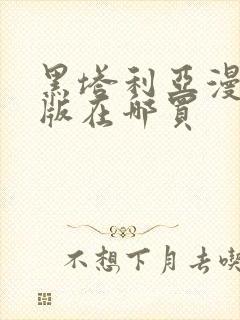 黑塔利亞漫
版在哪買
不想下月去喫